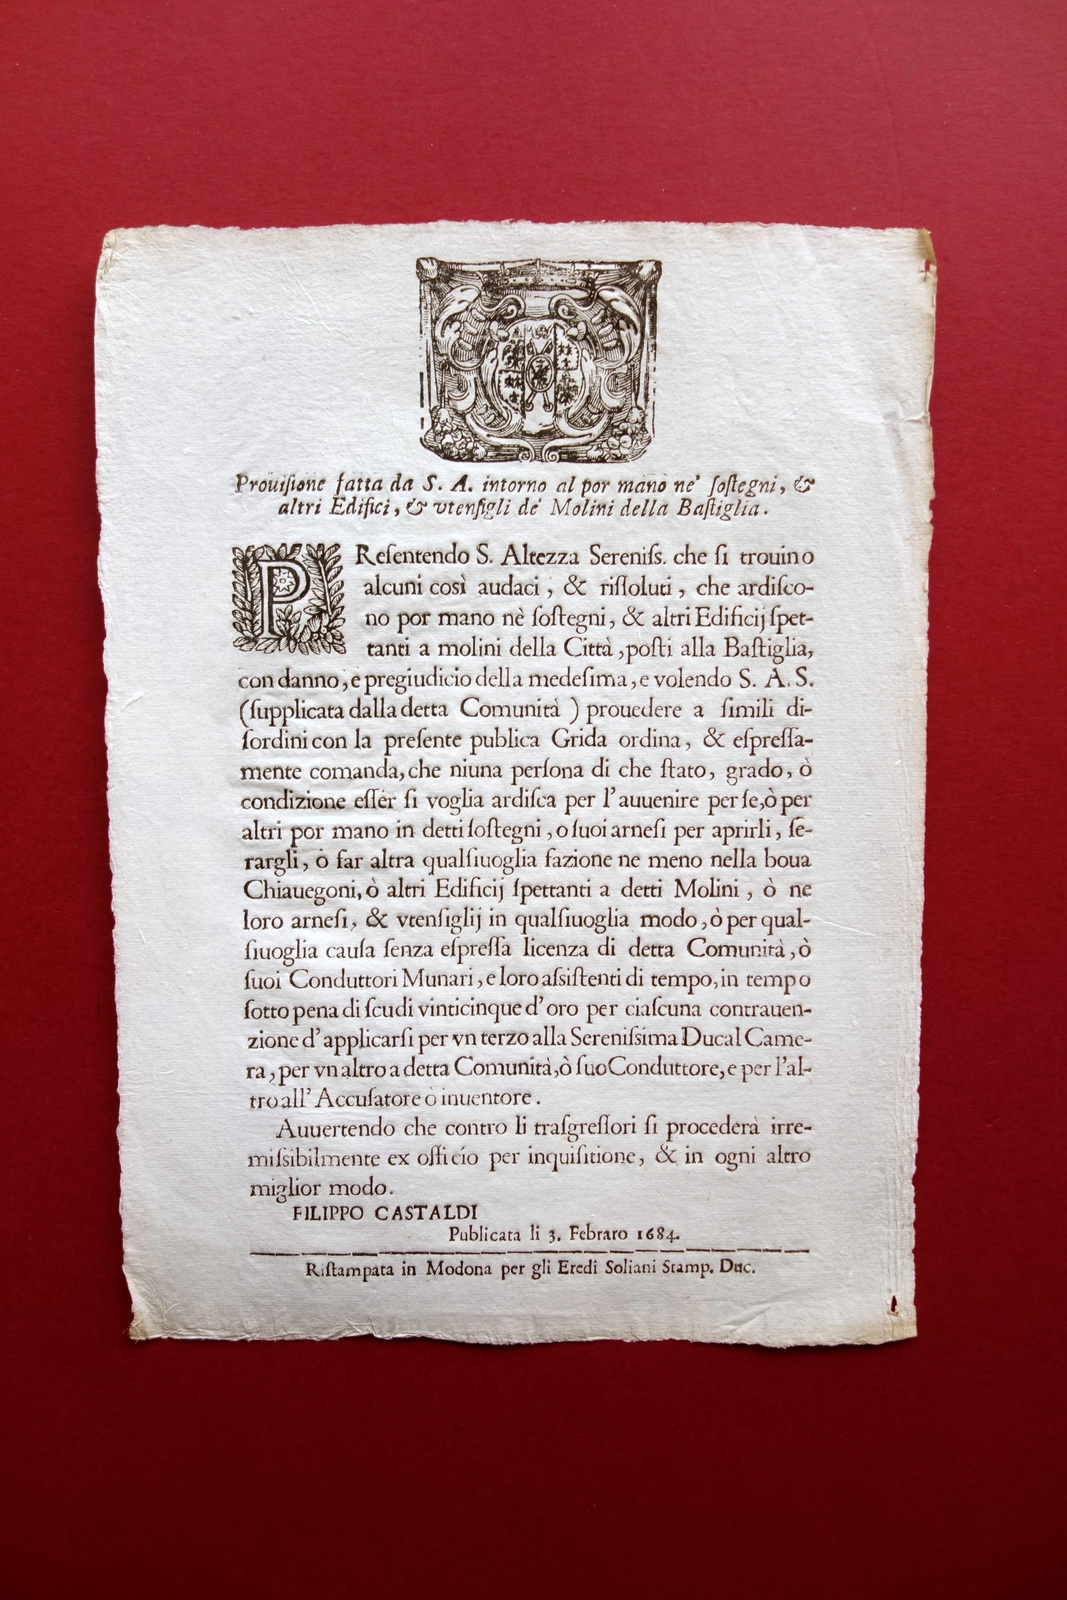 Prouiſione fatta da S. A. intorno al por mano ne' ſoſtegni, &
altri Edifici, & vtenſigli de' Molini della Baſtiglia.
PReſentendo S. Altezza Sereniſs. che ſi trouino
alcuni così audaci, & riſſoluti, che ardiſco-
no por mano nè ſoſtegni, & altri Edificij ſpet-
tanti a molini della Città, poſti alla Baſtiglia,
con danno, e pregiudicio della medeſima, e volendo S. A. S.
(ſupplicata dalla detta Comunità) prouedere a ſimili di-
ſordini con la preſente publica Grida ordina, & eſpreſſa-
mente comanda, che niuna perſona di che ſtato, grado, ò
condizione eſſer ſi voglia ardiſca per l'auuenire per ſe, ò per
altri por mano in detti ſoſtegni, o ſuoi arneſi per aprirli, ſe-
rargli, ò far altra qualſiuoglia fazione ne meno nella boua
Chiauegoni, ò altri Edificij ſpettanti a detti Molini, ò ne
loro arneſi, & vtenſiglij in qualſiuoglia modo, ò per qual-
ſiuoglia cauſa ſenza eſpreſſa licenza di detta Comunità, ò
ſuoi Conduttori Munari, e loro aſsiſtenti di tempo, in tempo
ſotto pena di ſcudi vinticinque d'oro per ciaſcuna contrauen-
zione d'applicarſi per vn terzo alla Sereniſsima Ducal Came-
ra, per vn altro a detta Comunità, ò ſuo Conduttore, e per l'al-
tro all' Accuſatore ò inuentore.
Auuertendo che contro li traſgreſſori ſi procederà irre-
miſsibilmente ex officio per inquiſitione, & in ogni altro
miglior modo.
FILIPPO CASTALDI
Publicata li 3. Febraro 1684.
Riſtampata in Modona per gli Eredi Soliani Stamp. Duc.